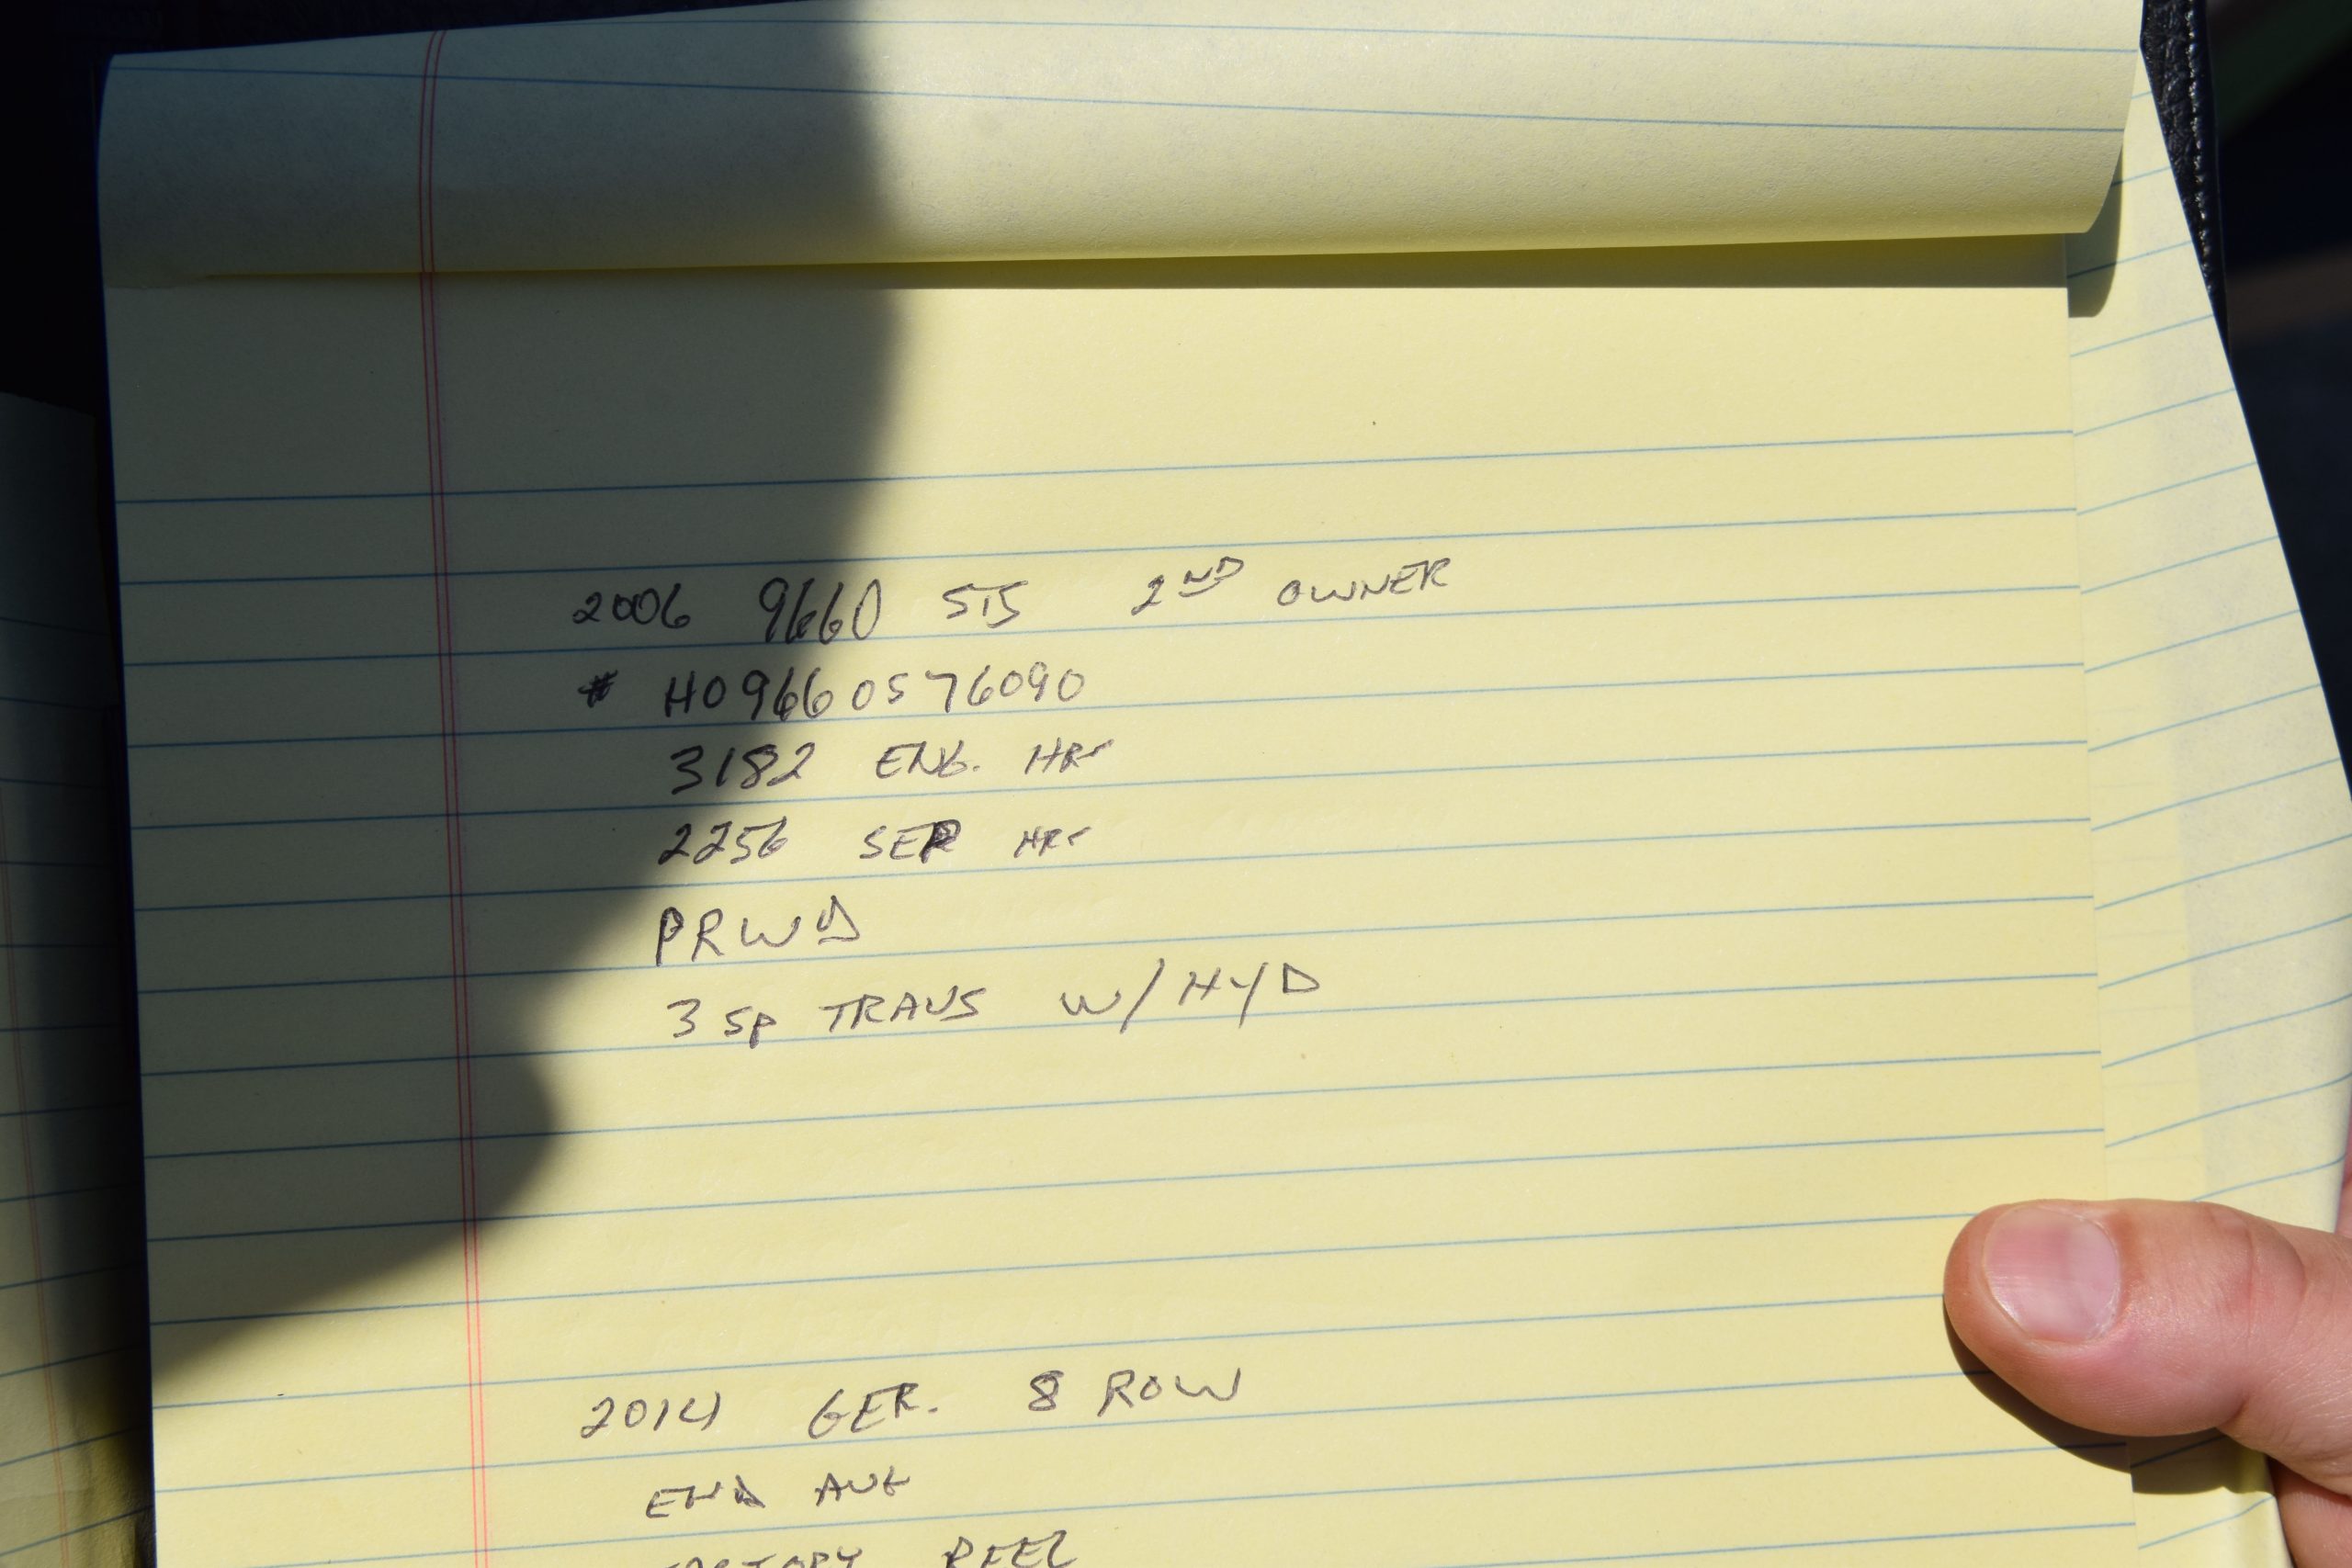 2006 9660 STS 2ND OWNER
# H09660S76090
3182 ENG. HRS
2256 SEP HRS
PRWD
3 SP TRANS W/HYD
2014 GER. 8 ROW
END AUG
FACTORY REEL